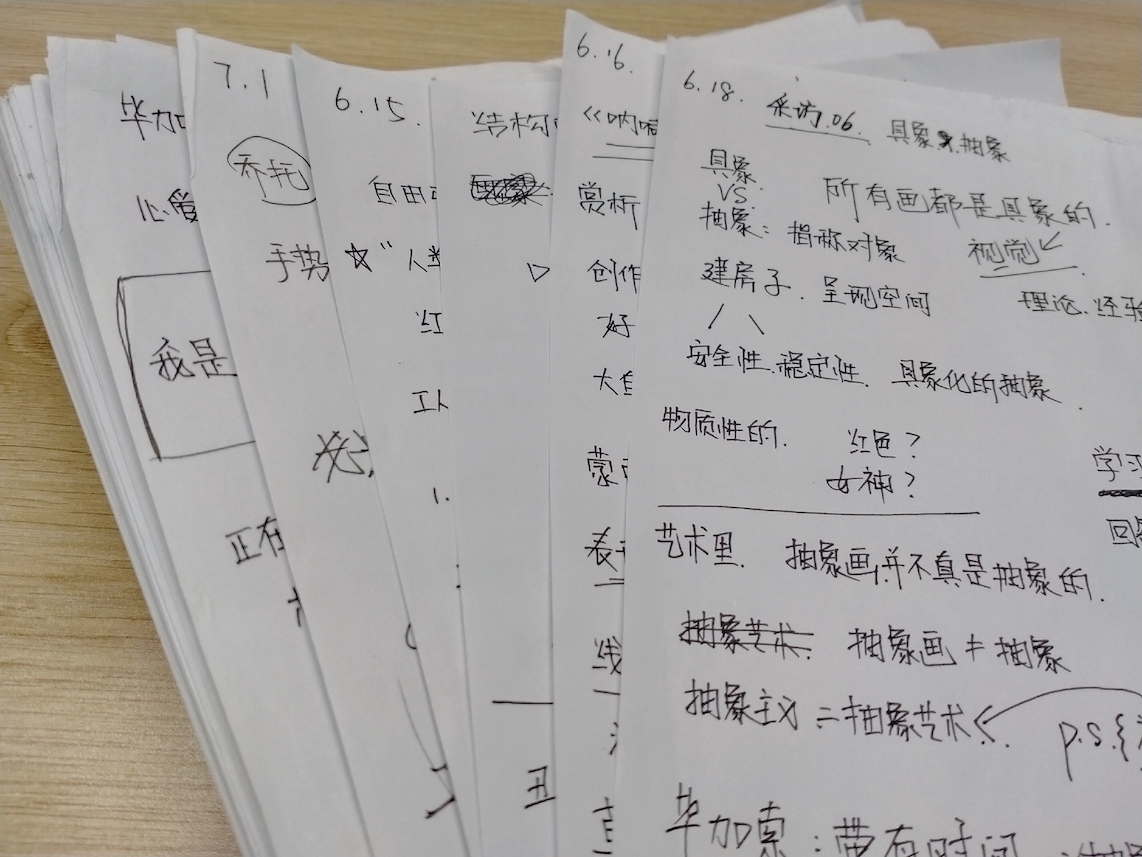 毕加
心爱
我是
正在
7.1
乔托
手势
6.15.
自由
☆“人类
红
工人
1.
结构
▷
丑
6.16.
《呐喊
赏析
创作
好
大自
蒙
表
线
6.18. 采访.06. 具象 抽象
具象
VS. 所有画都是具象的.
抽象: 指称对象 视觉
建房子. 呈现空间 理论.经验
安全性.稳定性. 具象化的抽象.
物质性的. 红色?
女神?
学习
回答
艺术里. 抽象画,并不真是抽象的.
抽象艺术. 抽象画≠抽象
抽象主义=抽象艺术
p.s.{
毕加索:带有时间